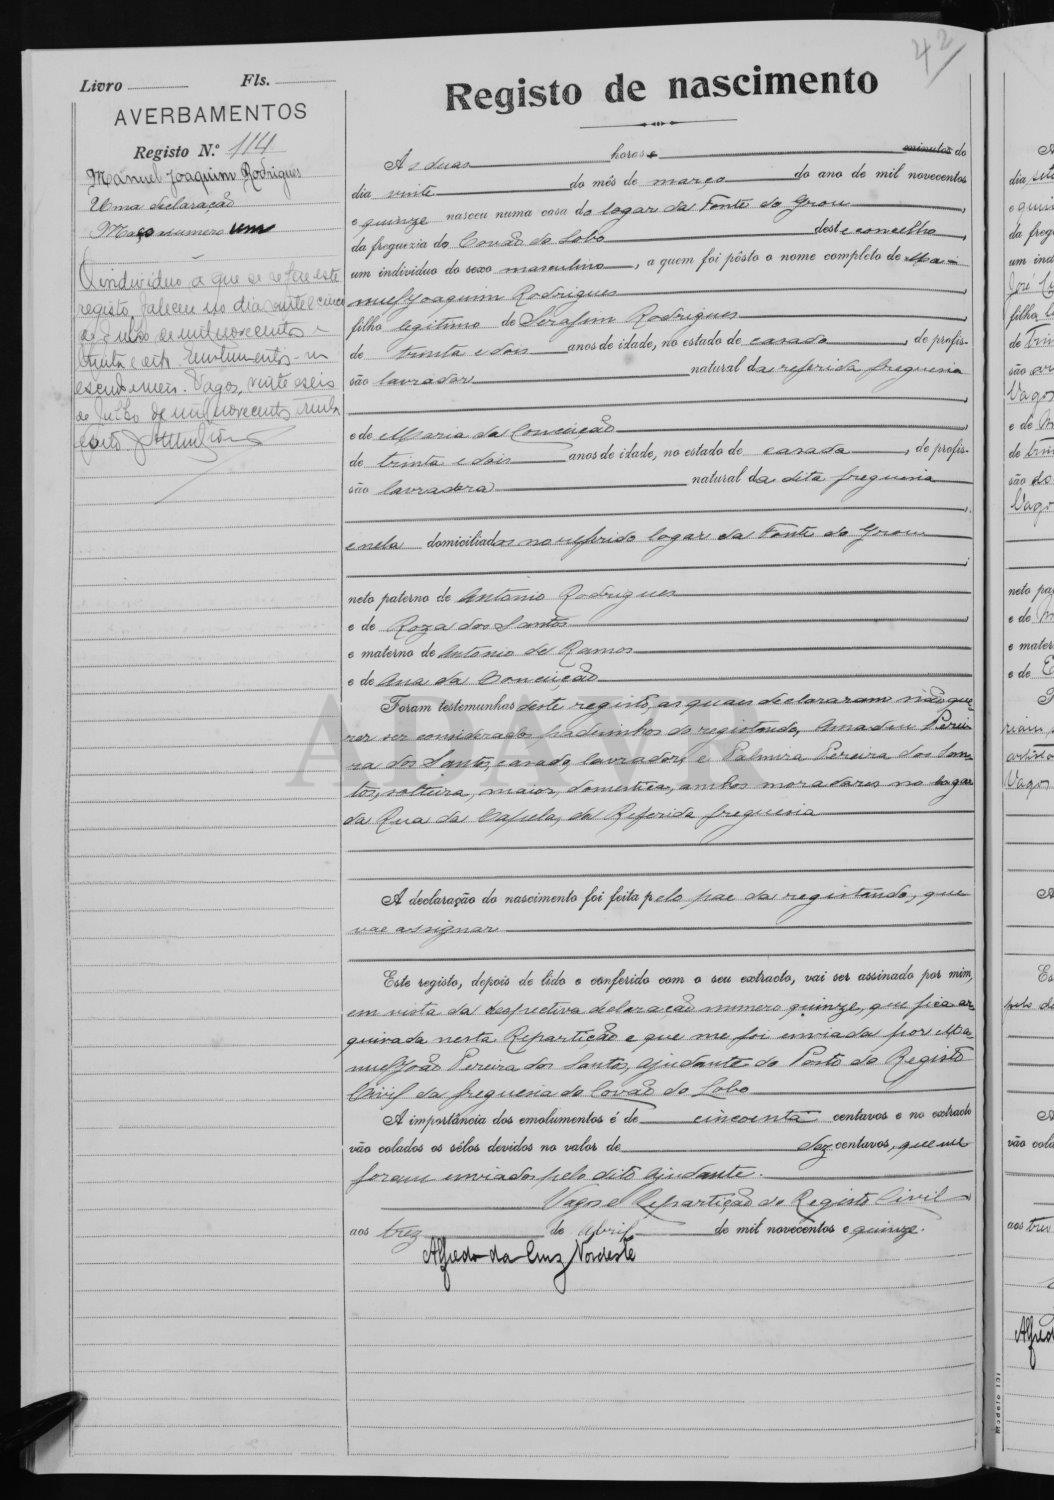 42
Livro Fls.
AVERBAMENTOS
Registo N.º 114
Manuel Joaquim Rodrigues
Uma declaração
Maço numero um
O individuo a que se refere este
registo, faleceu no dia vinte e cinco
de Julho de mil novecentos e
trinta e oito. Emolumentos - um
escudo. Vagos, vinte e seis
de Julho de mil novecentos trinta
e oito.
Registo de nascimento
As duas horas minutos do
dia vinte do mês de março do ano de mil novecentos
e quinze nasceu numa casa do logar da Fonte do Grou
da freguezia do Covão do Lobo deste concelho,
um individuo do sexo masculino, a quem foi pôsto o nome completo de Ma-
nuel Joaquim Rodrigues
filho legitimo de Serafim Rodrigues
de trinta e dois anos de idade, no estado de casado, de profis-
são lavrador natural da referida freguesia
e de Maria da Conceição
de trinta e dois anos de idade, no estado de casada, de profis-
são lavradora natural da dita freguesia
e nela domiciliados no referido logar da Fonte do Grou
neto paterno de Antonio Rodrigues
e de Roza dos Santos
e materno de Antonio de Ramos
e de Ana da Conceição
Foram testemunhas deste registo, as quaes declararam não que-
rer ser considerados padrinhos do registando, Amadeu Perei-
ra dos Santos, casado, lavrador, e Palmira Pereira dos San-
tos, solteira, maior, domestica, ambos moradores no logar
da Rua da Capela, da Referida freguesia
A declaração do nascimento foi feita pelo pae do registando, que
vae assignar
Este registo, depois de lido e conferido com o seu extracto, vai ser assinado por mim,
em vista da respectiva declaração numero quinze, que fica ar-
quivada nesta Repartição e que me foi enviada por Ma-
nuel João Pereira dos Santos, Ajudante do Posto do Registo
Civil da freguesia do Covão do Lobo
A importância dos emolumentos é de cincoenta centavos e no extracto
vão colados os sêlos devidos no valor de dez centavos, que me
foram enviados pelo dito Ajudante.
Vagos e Repartição do Registo Civil
aos trez de Abril de mil novecentos e quinze.
Alfredo da Cruz Nordeste
ADAVR
Modelo 131